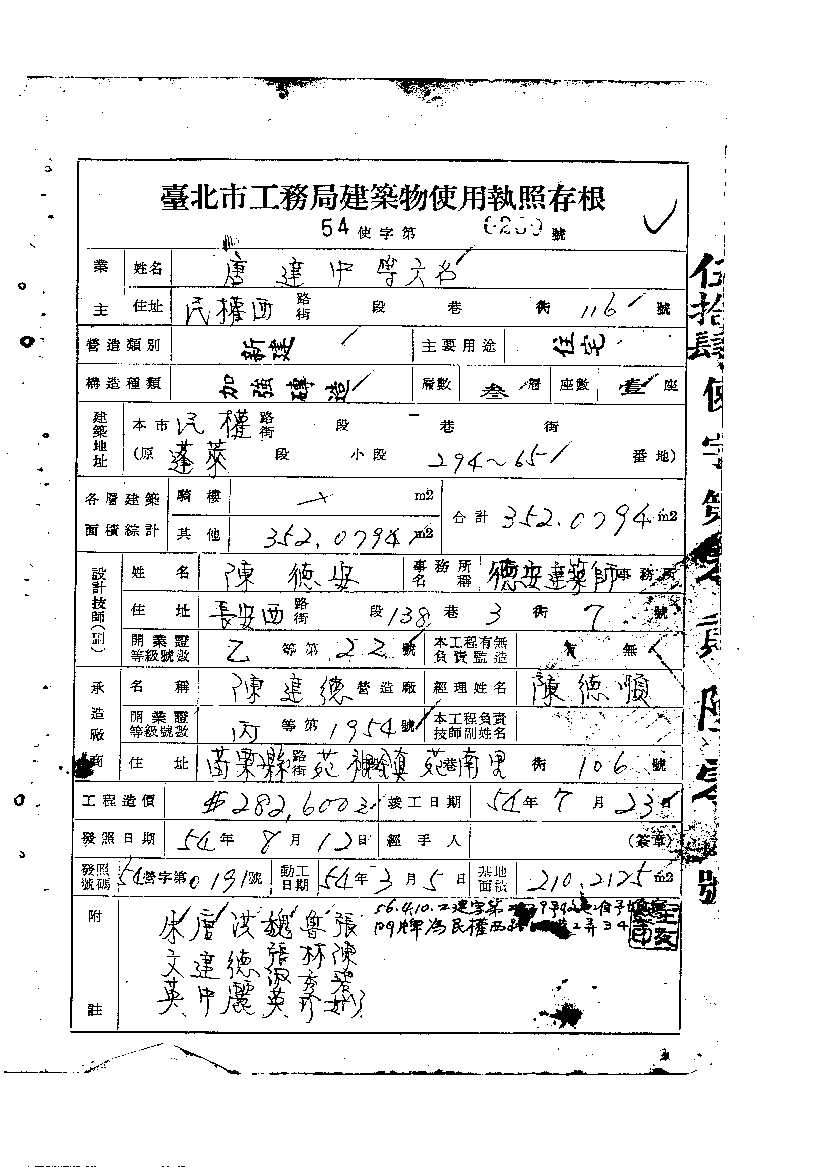 臺北市工務局建築物使用執照存根
54 使字第 0200 號
業主 姓名 唐建中等六名
住址 民權西路街 段 巷 衖 116 號
營造類別 新建 主要用途 住宅
構造種類 加強磚造 層數 叁層 座數 壹座
建築地址 本市民權路街 段 巷 衖
(原 蓬萊 段 小段 294~65 番地)
各層建築面積綜計 騎樓 m2 合計 352.0794 m2
其他 352.0794 m2
設計技師(副) 姓名 陳德安 事務所名稱 德安建築師事務所
住址 長安西路街 段 138 巷 3 衖 7 號
開業證等級號數 乙 等第 22 號 本工程有無負責監造 有 無
承造廠商 名稱 陳建德營造廠 經理姓名 陳德順
開業證等級號數 丙 等第 1954 號 本工程負責技師副姓名
住址 苗栗縣路街 苑裡鎮 苑南里 巷 衖 106 號
工程造價 $282,600元 竣工日期 54年7月23日
發照日期 54年8月12日 經手人 (簽章)
發照號碼 54營字第0191號 動工日期 54年3月5日 基地面積 210.2125 m2
附註 宋文英 唐建中 洪德麗 魏張淑英 魯林秀珍 張陳
56.4.10.
門牌為民權西路
伍拾肆使字第零貳陸零
號